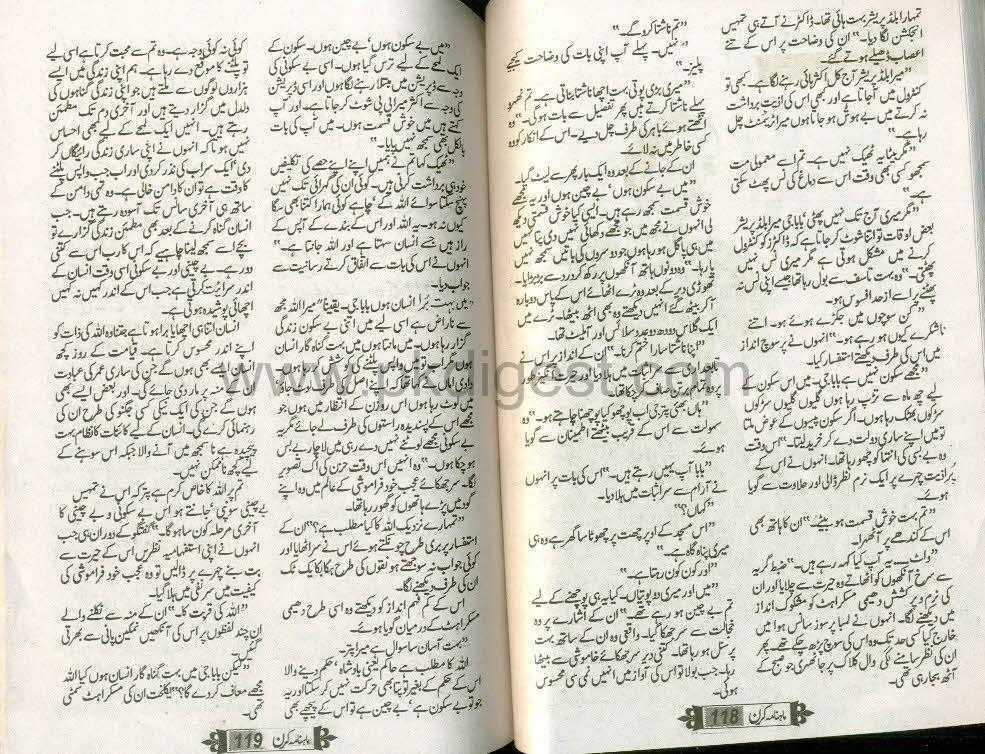 تمہارا بلڈ پریشر بہت ہائی تھا۔ ڈاکٹر نے آتے ہی تمہیں
انجکشن لگا دیا۔" ان کی وضاحت پر اس کے تنے
اعصاب ڈھیلے ہوتے گئے۔
"میرا بلڈ پریشر آج کل اکثر ہائی رہنے لگا ہے۔ کبھی تو
کنٹرول میں آ جاتا ہے اور کبھی اس کی اذیت برداشت
نہ کرتے میں بے ہوش ہو جاتا ہوں میرا ٹریٹمنٹ چل
رہا ہے۔"
"مگر بیٹا یہ ٹھیک نہیں ہے۔ تم اسے معمولی مت
سمجھو کسی بھی وقت اس سے دماغ کی نس پھٹ سکتی
ہے۔"
"مگر میری آج تک نہیں پھٹی، باباجی میرا بلڈ پریشر
بعض اوقات تو اتنا شوٹ کر جاتا ہے کہ ڈاکٹرز کو کنٹرول
کرنے میں مشکل ہوتی ہے مگر میری نس نہیں
پھٹتی۔" وہ بہت تاسف سے بول رہا تھا جیسے اپنی نس نہ
پھٹنے پر اسے از حد افسوس ہو۔
"کن سوچوں میں جکڑے ہوئے ہو۔ اتنے
ناشکرے کیوں ہو رہے ہو۔" انہوں نے پر سوچ انداز
میں اس کی طرف دیکھتے استفسار کیا۔
"مجھے سکون نہیں ہے باباجی۔ میں اس سکون کے
لیے چھ ماہ سے تڑپ رہا ہوں گلیوں گلیوں سڑکوں
سڑکوں بھٹک رہا ہوں۔ اگر سکون پیسوں کے عوض ملتا
تو میں اپنے ساری دولت دے کر خرید لیتا۔" اس وقت
وہ بے بسی کی انتہا کو چھو رہا تھا۔ انہوں نے اس کے
پُر اذیت چہرے پر ایک نرم نظر ڈالی اور حلاوت سے گویا
ہوئے۔
"تم بہت خوش قسمت ہو بیٹے۔" ان کا ہاتھ بھی
اس کے کندھے پر آ ٹھہرا۔
"واٹ۔ یہ آپ کیا کہہ رہے ہیں۔" ضبط گریہ
سے سرخ آنکھوں کو اٹھاتے وہ حیرت سے چلایا اور ان
کی نرم و پر کشش دھیمی مسکراہٹ کو مشکوک انداز
میں دیکھنے لگا۔ انہوں نے لمبا پر سوز سانس ہوا میں
خارج کیا کسی حد تک وہ اس کی سوچ پڑھ چکے تھے۔ پھر
ان کی نظر سامنے لگی وال کلاک پر جا ٹھہری جو صبح کے
آٹھ بجا رہی تھی۔
"تم ناشتا کرو گے۔"
"نہیں۔ پہلے آپ اپنی بات کی وضاحت کیجیے
پلیز۔"
"میری بڑی پوتی بہت اچھا ناشتا بناتی ہے۔ تم ٹھہرو
پہلے ناشتا کرتے ہیں پھر تفصیل سے بات ہو گی۔" وہ
اٹھتے ہوئے باہر کی طرف چل دیے۔ اس کے انکار کو وہ
کسی خاطر میں نہ لائے۔
ان کے جانے کے بعد وہ ایک بار پھر سے لیٹ گیا۔
"میں بے سکون ہوں، بے چین ہوں اور یہ مجھے
خوش قسمت سمجھ رہے ہیں۔ ایسی کیا خوش قسمتی دیکھ
لی انہوں نے مجھ میں جو مجھے دکھائی نہیں دی یا شاید
میں ہی پاگل ہو رہا ہوں جو دوسروں کی باتیں سمجھ نہیں
پا رہا۔" وہ دونوں ہاتھ آنکھوں پر رکھ کر درد سے بڑبڑایا۔
تھوڑی دیر کے بعد وہ ٹرے اٹھائے اس کے پاس دوبارہ
آ کر بیٹھ گئے انہیں دیکھتے وہ بھی اٹھ بیٹھا۔ ٹرے میں
ایک گلاس دودھ دو عدد سلائس اور آملیٹ تھا۔
"اپنا ناشتا سارا ختم کرنا۔" ان کے انداز پر اس نے
تابعداری سے سر اثبات میں ہلا دیا اور پندرہ منٹ بعد
وہ تمام ٹرے صاف کر چکا تھا۔
"ہاں بھئی پتر جی اب پوچھو کیا پوچھنا چاہتے ہو۔" وہ
سہولت سے اس کے قریب بیٹھتے اطمینان سے گویا
ہوئے۔
"بابا آپ یہیں رہتے ہیں۔" اس کی بات پر انہوں
نے آرام سے سر اثبات میں ہلا دیا۔
"کہاں؟"
"اس مسجد کے اوپر چھت پر چھوٹا سا گھر ہے وہ ہی
میری پناہ گاہ ہے۔"
"اور کون کون رہتا ہے۔"
"میں اور میری دو پوتیاں۔ کیا یہ ہی پوچھنے کے لیے
تم بے چین ہو رہے تھے۔" ان کے اشارے پر وہ
خجالت سے سر جھکا گیا۔ واقعی وہ ان کے ساتھ بہت
پرسنل ہو رہا تھا۔ کتنی دیر سر جھکائے خاموشی سے بیٹھا
رہا۔ جب بولا تو اس کی آواز میں انہیں نمی سی محسوس
ہوئی۔
ماہنامہ کرن 118
"میں بے سکون ہوں، بے چین ہوں۔ سکون کے
ایک لمحے کے لیے ترس گیا ہوں۔ اسی بے سکونی کی
وجہ سے ڈپریشن میں مبتلا رہنے لگا ہوں اور اسی ڈپریشن
کی وجہ سے اکثر میرا بی پی شوٹ کر جاتا ہے۔ اور آپ
کہتے ہیں میں خوش قسمت ہوں۔ میں آپ کی بات
بالکل بھی سمجھ نہیں پایا۔"
"ٹھیک کہا تم نے ہمیں اپنے اپنے حصے کی تکلیفیں
خود ہی برداشت کرنی ہیں۔ کوئی ان کی گہرائی تک نہیں
پہنچ سکتا سوائے اللہ کے، چاہے کوئی ہمارا کتنا بھی سگا
کیوں نہ ہو۔ یہ اللہ اور اس کے بندے کے آپس کے
راز ہیں جسے انسان سہتا ہے اور اللہ جانتا ہے۔"
انہوں نے اس کی بات سے اتفاق کرتے رسانیت سے
جواب دیا۔
"میں بہت بُرا انسان ہوں باباجی۔ یقیناً میرا اللہ مجھ
سے ناراض ہے اسی لیے میں اتنی بے سکون زندگی
گزار رہا ہوں۔ میں مانتا ہوں میں بہت گناہ گار انسان
ہوں مگر اب تو میں واپس پلٹنے کی کوشش کر رہا ہوں
میں لوٹ رہا ہوں اس روزن کے انتظار میں ہوں جو
مجھے اس کے پسندیدہ راستوں کی طرف لے جائے مگر یہ
بے سکونی مجھے لوٹنے نہیں دے رہی میں لاچار بے بس
ہو چکا ہوں۔" وہ انہیں اس وقت حزن کی اک تصویر
لگا۔ سر جھکائے عجب خود فراموشی کے عالم میں وہ اپنے
گود میں پڑے ہاتھوں کو گھور رہا تھا۔
"تمہارے نزدیک اللہ کا کیا مطلب ہے؟" ان کے
استفسار پر بری طرح چونکتے ہوئے اس نے سر اٹھایا اور
کوئی جواب نہ سوجھتے ہونقوں کی طرح ہکا بکا یک ٹک
ان کی طرف دیکھنے لگا۔
اس کے کم فہم انداز کو دیکھتے وہ اسی طرح دھیمی
مسکراہٹ کے درمیان گویا ہوئے۔
"بہت آسان سا سوال ہے میرا پتر۔
اللہ کا مطلب ہے حاکم یعنی بادشاہ، حکم دینے والا
اس کے حکم کے بغیر تو پتا بھی حرکت نہیں کر سکتا اور یہ
جو تو بے سکون ہے، بے چین ہے تو اس کے پیچھے بھی
کوئی نہ کوئی وجہ ہے۔ وہ تم سے محبت کرتا ہے اسی لیے
تو پلٹنے کا موقع دے رہا ہے۔ ہم اپنی زندگی میں ایسے
ہزاروں لوگوں سے ملتے ہیں جو اپنی زندگی گناہوں کی
دلدل میں گزار دیتے ہیں اور آخری دم تک مطمئن
رہتے ہیں۔ انہیں ایک لمحے کے لیے بھی احساس
نہیں ہوتا کہ انہوں نے اپنی ساری زندگی رائیگاں کر
دی، ایک سراب کی نذر کر دی اور اب جب واپس پلٹنے
کا وقت ہے تو ان کا دامن خالی ہے۔ وہ تہی دامن کے
ساتھ ہی آخری سانس تک آسودہ رہتے ہیں۔ جب
انسان گناہ کرنے کے بعد بھی مطمئن زندگی گزارے تو
بجائے اسے سمجھ لینا چاہیے کہ اس کا رب اس سے کتنی
دور ہے۔ بے چینی اور بے سکونی اسی وقت انسان کے
اندر سرایت کرتی ہے جب اس کے اندر کہیں نہ کہیں
اچھائی پوشیدہ ہوتی ہے۔
انسان اتنا ہی اچھا یا برا ہوتا ہے جتنا وہ اللہ کی ذات کو
اپنے اندر محسوس کرتا ہے۔ قیامت کے روز کچھ
انسان ایسے بھی ہوں گے جن کی ساری عمر کی عبادت
ان کے منہ پر مار دی جائے گی۔ اور بعض ایسے بھی
ہوں گے جن کی ایک نیکی کسی جگنو کی طرح ان کی
رہنمائی کرے گی۔ انسان کے لیے کائنات کا نظام بہت
پیچیدہ ہے نا سمجھ میں آنے والا جبکہ اس سوہنے کے
لیے کچھ ناممکن نہیں۔
تم پر اللہ کا خاص کرم ہے پتر کہ اس نے تمہیں
بے چینی سونپی، جانتے ہو اس بے سکونی و بے چینی کا
آخری مرحلہ کون سا ہو گا۔" گفتگو کے دوران ہی جب
انہوں نے اپنی استفہامیہ نظریں اس کے حیرت سے
بت بنے چہرے پر ڈالیں تو وہ عجب خود فراموشی کی
کیفیت میں سر نفی میں ہلا گیا۔
"اللہ کی قربت کا۔" ان کے منہ سے نکلنے والے
ان چند لفظوں پر اس کی آنکھیں نمکین پانی سے بھرتی
گئیں۔
"لیکن باباجی میں بہت گناہ گار انسان ہوں کیا اللہ
مجھے معاف کر دے گا؟" یکلخت ان کی مسکراہٹ سمٹی
تھی۔
ماہنامہ کرن 119
www.pkdigest.com